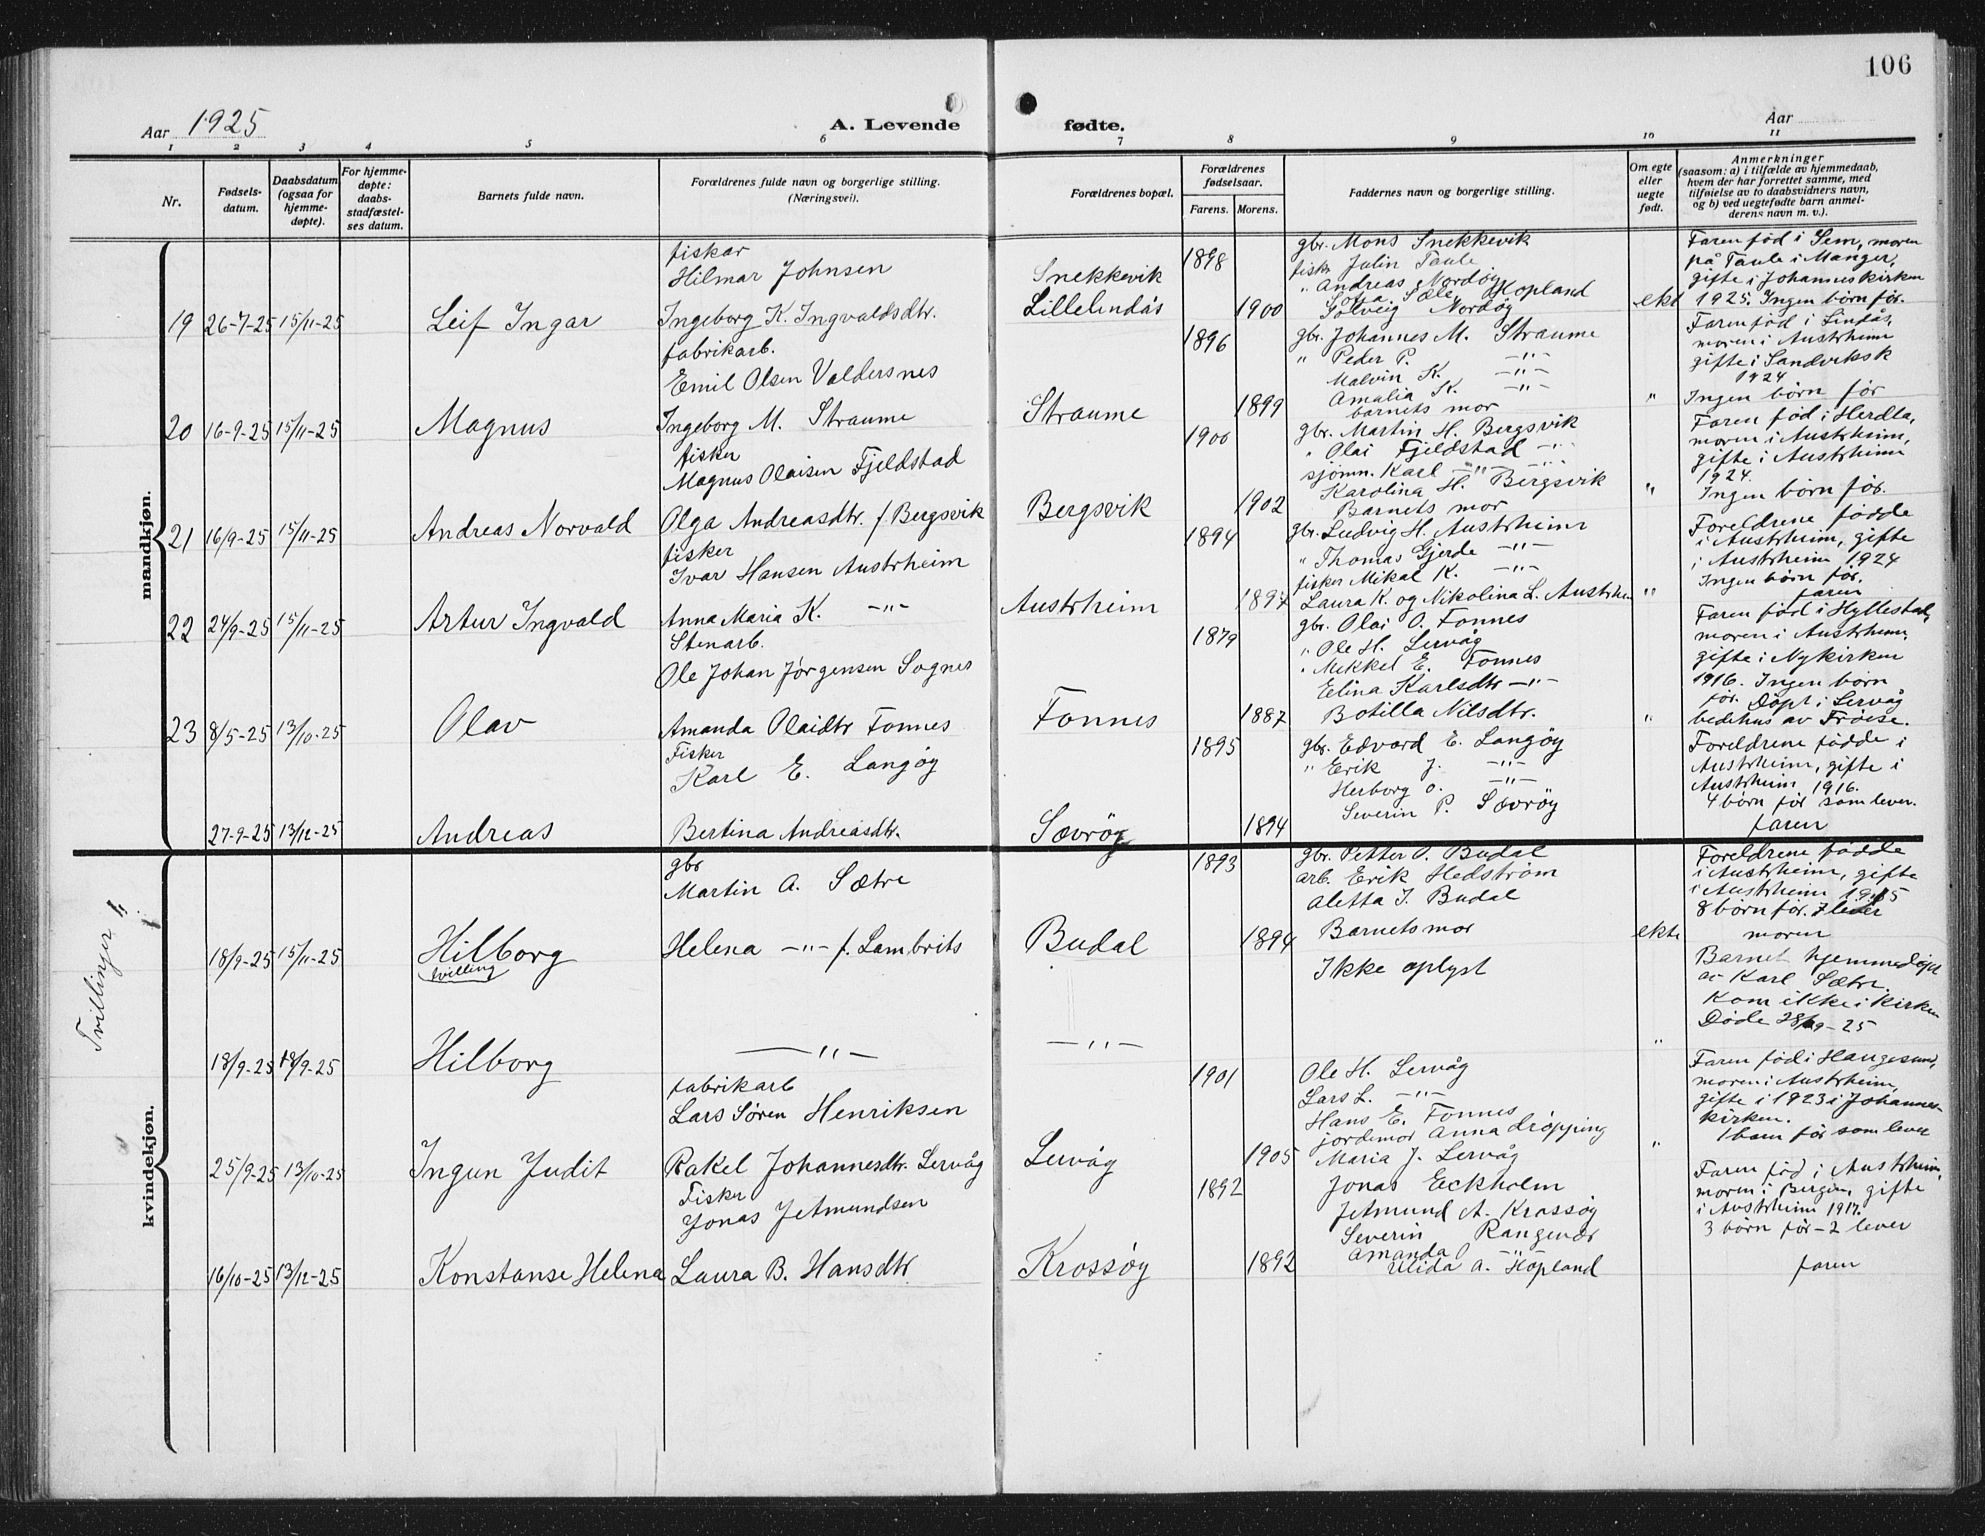 106
Aar 1925
A. Levende fødte.
Aar
1 2 3 4 5 6 7 8 9 10 11
Nr.
Fødsels-
datum.
Daabsdatum
(ogsaa for
hjemme-
døpte).
For hjemme-
døpte:
daabs-
stadfæstel-
ses datum.
Barnets fulde navn.
Forældrenes fulde navn og borgerlige stilling.
(Næringsvei).
Forældrenes bopæl.
Forældrenes
fødselsaar.
Farens. Morens.
Faddernes navn og borgerlige stilling.
Om egte
eller
uegte
født.
Anmerkninger
(saasom: a) i tilfælde av hjemmedaab,
hvem der har forrettet samme, med
tilføielse av to daabsvidners navn,
og b) ved uegtefødte barn anmel-
derens navn m. v.).
mandkjøn.
19 26-7-25 15/11-25 Leif Ingar
fiskar
Hilmar Johnsen
Ingeborg K. Ingvaldsdtr.
Snekkevik
Lillelindås
1898 1900
gbr. Mons Snekkevik
fisk. Julin Taule
" Andreas Nordøy
Sofia Sæle, Hopland
Solveig Nordøy
ekt
Faren fød i Sem, moren
på Taule i Manger,
gifte i Johanneskirken
1925. Ingen børn før.
20 16-9-25 15/11-25 Magnus
fabrikarb.
Emil Olsen Valdersnes
Ingeborg M. Straume
Straume
1896 1899
gbr. Johannes M. Straume
" Peder P. -"-
Malvin K. -"-
Amalia K. -"-
barnets mor
"
Faren fød i Lindås,
moren i Austrheim
gifte i Sandviksk
1924
Ingen børn før
21 16/9-25 15/11-25 Andreas Norvald
fisker
Magnus Olaisen Fjeldstad
Olga Andreasdtr. f. Bergsvik
Bergsvik
1900 1902
gbr. Martin H. Bergsvik
" Olai Fjeldstad -"-
sjömn. Karl -"- -"-
Karolina H. Bergsvik
Barnets mor
"
Faren fød i Herdla,
moren i Austrheim,
gifte i Austrheim
1924.
Ingen børn før.
22 24/9-25 15/11-25 Artur Ingvald
fisker
Ivar Hansen Austrheim
Anna Maria K. -"-
Austrheim
1894 1897
gbr. Ludvig H. Austrheim
" Thomas Gjerde -"-
fisker Mikal K. -"-
Laura K. og Nikolina L. Austrheim
"
Foreldrene fødde
i Austrheim, gifte
i Austrheim 1924
Ingen børn før.
faren
23 8/5-25 13/10-25 Olav
Stenarb.
Ole Johan Jørgensen Sognes
Amanda Olaidtr Fonnes
Fonnes
1879 1887
gbr. Olai O. Fonnes
" Ole H. Lervåg
" Mikkel E. Fonnes
Elina Karlsdtr -"-
Botilla Nilsdtr.
"
Faren fød i Hyllestad,
moren i Austrheim,
gifte i Nykirken
1916. Ingen børn
før. Döpt i Lervåg
bedehus av Frøise.
27-9-25 13/12-25 Andreas
Fisker
Karl E. Langøy
Bertina Andreasdtr.
Sævrøy
1895 1894
gbr. Edvard E. Langøy
" Erik J. -"-
Herborg O. -"-
Severin P. Sævrøy
Foreldrene fødde i
Austrheim, gifte i
Austrheim 1916.
4 börn før som lever.
faren
kvindekjøn.
Tvillinger
18/9-25 15/11-25 Hilborg
tvilling
gbr
Martin A. Sætre
Helena -"- f. Lambrits
Budal
1893 1894
gbr. Petter O. Budal
arb. Erik Hedstrøm
Aletta I. Budal
Barnets mor
ekte
Foreldrene fødde
i Austrheim, gifte
i Austrheim 1915
8 børn før. 7 lever
moren
18/9-25 18/9-25 Hilborg
-"-
-"-
Ikke oplyst
"
Barnet hjemmedöpt
av Karl Sætre.
Kom ikke i kirken
Døde 28/9-25
25/9-25 13/10-25 Ingun Judit
fabrikarb
Lars Søren Henriksen
Rakel Johannesdtr. Lervåg
Lervåg
1901 1905
Ole H. Lervåg
Lars L. -"-
Hans E. Fonnes
jordemor Anna Dröpping
Maria J. Lervåg
"
Faren fød i Haugesund,
moren i Austrheim,
gifte i 1923 i Johannes-
kirken.
1 barn før som lever
16/10-25 13/12-25 Konstanse Helena
Fisker
Jonas J. Amundsen
Laura B. Hansdtr
Krossøy
1892 1892
Jonas Eckholm
J. Amund A. Krossøy
Severin Rangenær
Amanda -"-
Ulida A. Hopland
Faren fød i Austrheim,
moren i Bergen, gifte
i Austrheim 1917.
3 börn før - 2 lever
faren